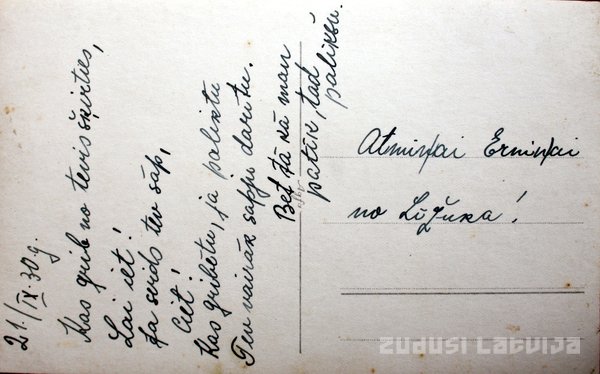 21./IX. 30.g.
Kas grib no tevis šķirties,
Lai iet!
Ja sirds tev sāp,
Ciet!
Kas gribētu, ja paliktu
Tev vairāk sāpju darītu.
Bet tā kā man
patīk, tad
palikšu.
Atmiņai Ermiņai
no Līžuka!
zudusi Latvija